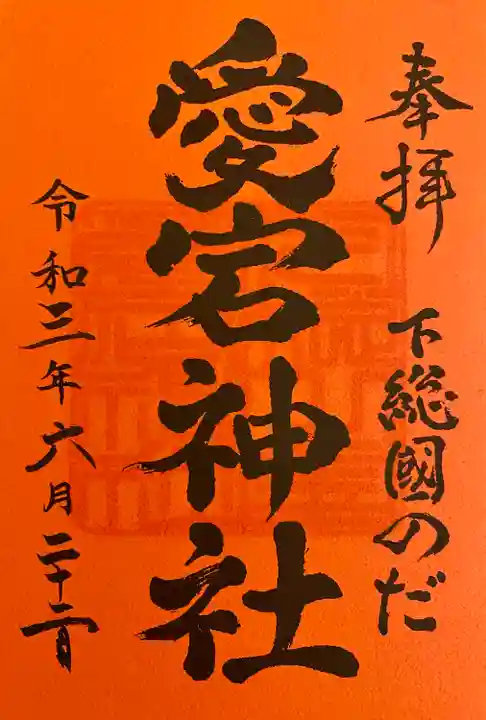 奉拝
下総國のだ
愛宕神社
令和三年六月二十二日